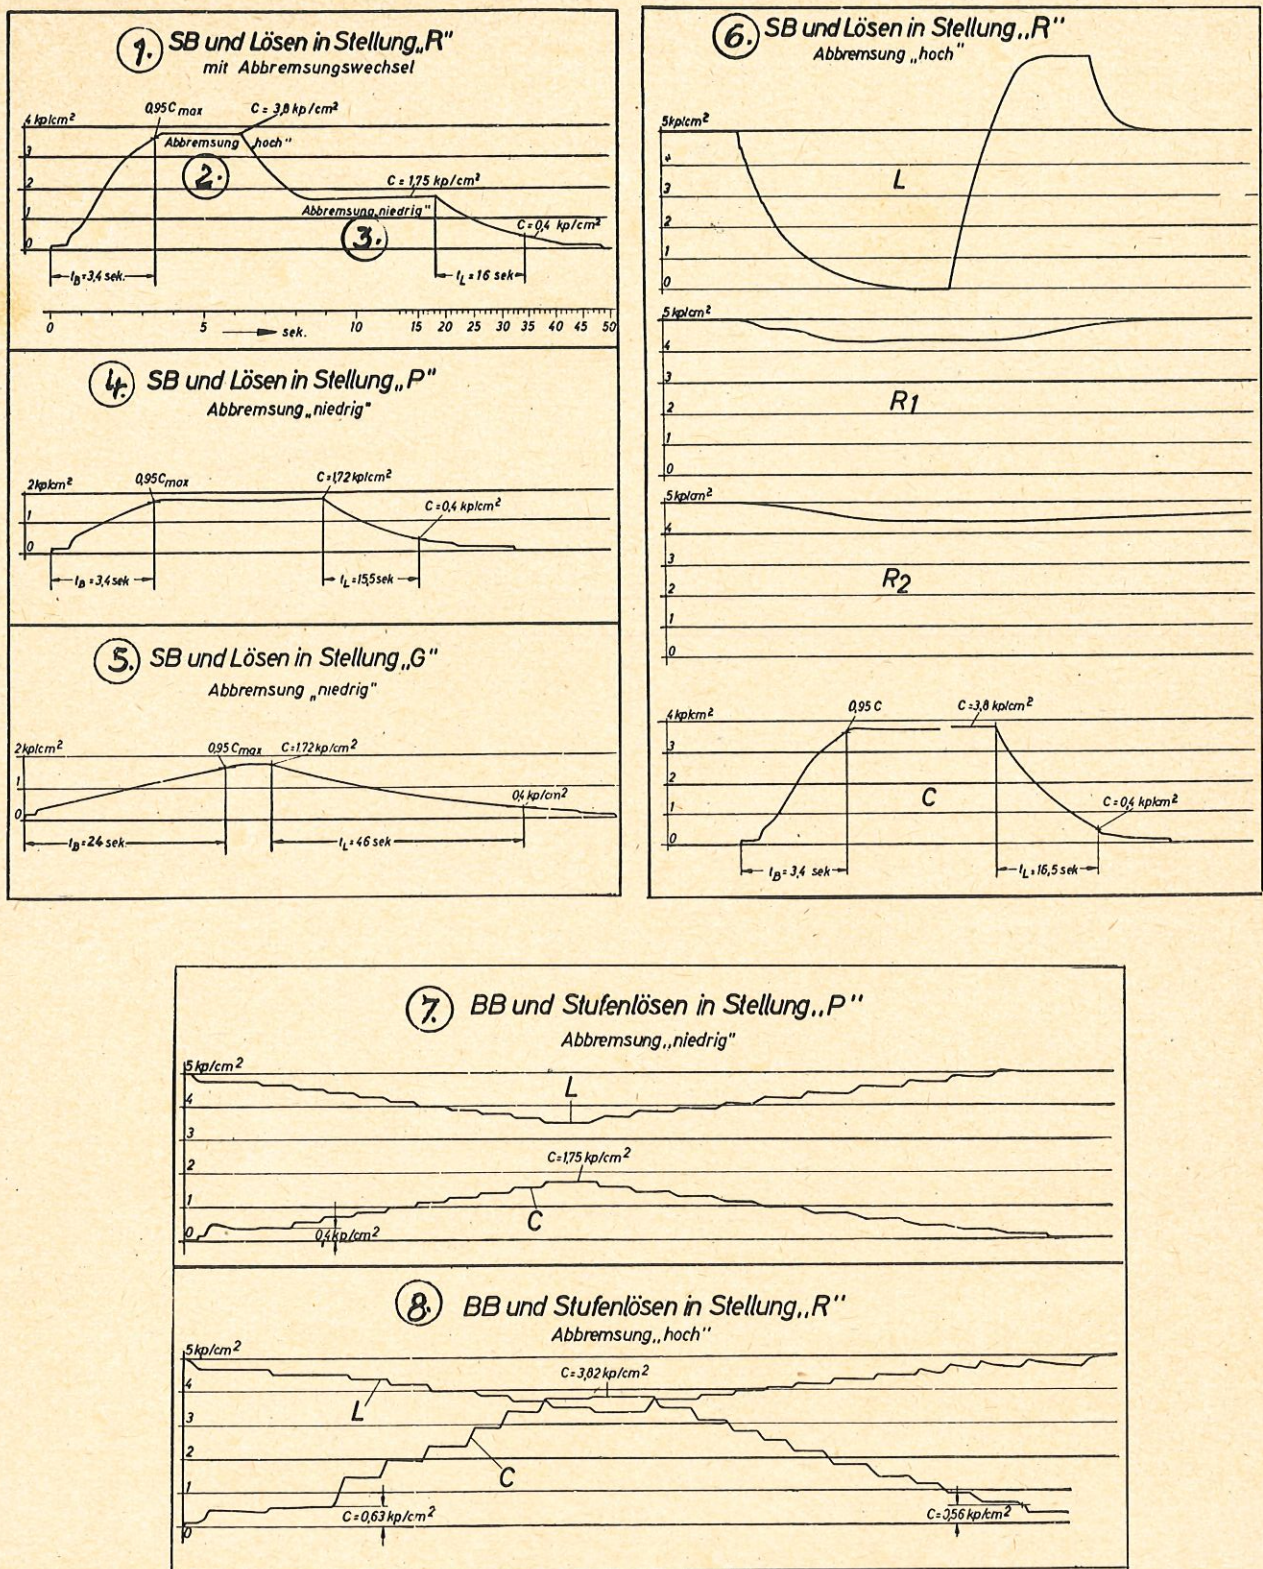 1. SB und Lösen in Stellung„R"
mit Abbremsungswechsel
0,95C max
C = 3,8 kp/cm²
4 kp/cm²
Abbremsung „hoch"
3
2.
2
C = 1,75 kp/cm²
Abbremsung„niedrig"
1
3.
C = 0,4 kp/cm²
0
tB=3,4 sek.
tL=16 sek
0 5 sek. 10 15 20 25 30 35 40 45 50
4. SB und Lösen in Stellung„P"
Abbremsung„niedrig"
2kp/cm²
0,95Cmax
C=1,72 kp/cm²
1
C=0,4 kp/cm²
0
tB=3,4 sek
tL=15,5sek
5. SB und Lösen in Stellung„G"
Abbremsung „niedrig"
2kp/cm²
0,95 Cmax
C=1,72 kp/cm²
1
0,4 kp/cm²
0
tB=24 sek
tL=46 sek
6. SB und Lösen in Stellung„R"
Abbremsung „hoch"
5kp/cm²
4
L
3
2
1
0
5 kp/cm²
4
3
R1
2
1
0
5kp/cm²
4
3
R2
2
1
0
4 kp/cm²
0,95 C
C=3,8 kp/cm²
3
2
C
1
C=0,4 kp/cm²
0
tB=3,4 sek
tL=16,5sek
7. BB und Stufenlösen in Stellung„P"
Abbremsung„niedrig"
5 kp/cm²
L
4
3
C=1,75 kp/cm²
2
1
C
0
0,4kp/cm²
8. BB und Stufenlösen in Stellung„R"
Abbremsung„hoch"
5 kp/cm²
C=3,82 kp/cm²
4
L
3
2
C
1
C=0,63 kp/cm²
C=0,56 kp/cm²
0